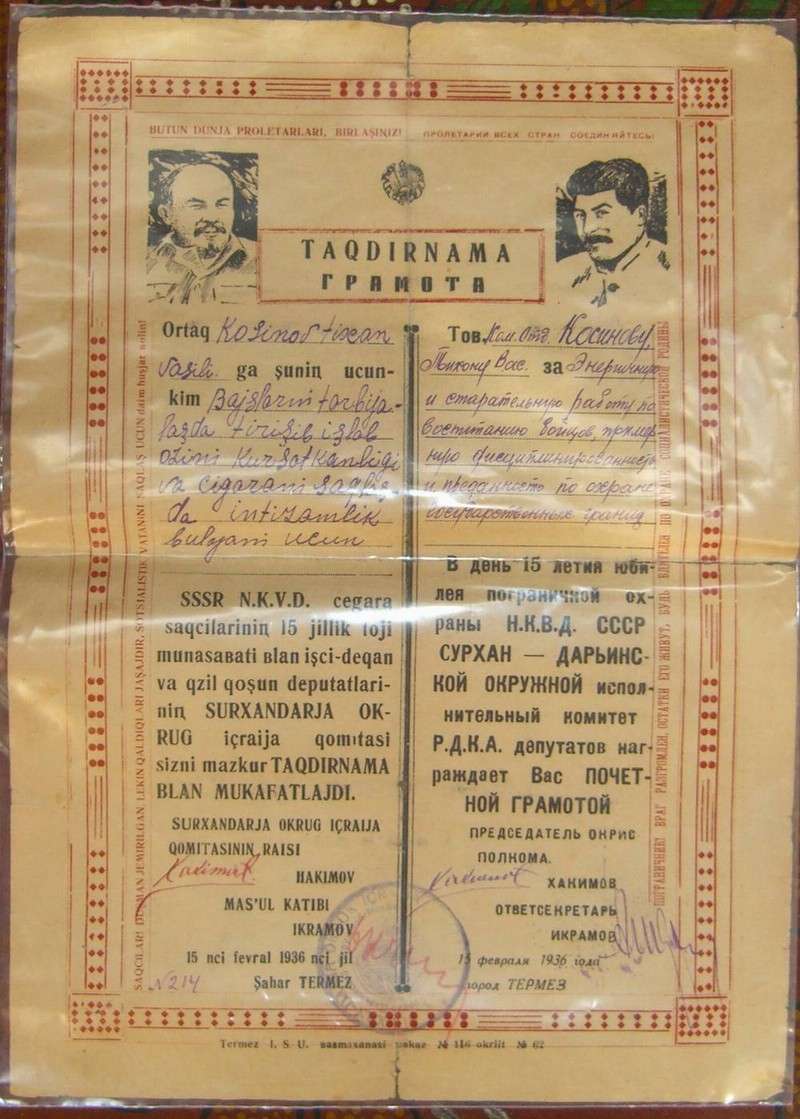 BUTUN DUNJA PROLETARLARI, BIRLAŞINIZ!
ПРОЛЕТАРИИ ВСЕХ СТРАН СОЕДИНЯЙТЕСЬ!
TAQDIRNAMA
ГРАМОТА
Ortaq Kosinov Tixan
Vasili. ga şuniꞑ ucun-
kim Bajsların tarbija-
laşda tirişib işlab
ozini kursatkanligi
va cigarani saqlaş
da intizamlik
bulgani ucun
SSSR N.K.V.D. cegara
saqcilariniꞑ 15 jillik toji
munasavati ʙlan işci-deqan
va qzil qoşun deputatlari-
niꞑ SURXANDARJA OK-
RUG içraija qomitasi
sizni mazkur TAQDIRNAMA
BLAN MUKAFATLAJDI.
SURXANDARJA OKRUG IÇRAIJA
QOMITASININ RAISI
HAKIMOV
MAS'UL KATIBI
IKRAMOV
15 nci fevral 1936 nci jil
Şahar TERMEZ
N 214
Тов. Ком. Отд. Косинову
Тихону Вас. за Энергичную
и старательную работу по
воспитанию бойцов, пример-
ную дисциплинированность
и преданность по охране
государственных границ
В день 15 летия юби-
лея пограничной ох-
раны Н.К.В.Д. СССР
СУРХАН — ДАРЬИНС-
КОЙ ОКРУЖНОЙ испол-
нительный комитет
Р.Д.К.А. депутатов наг-
раждает Вас ПОЧЕТ-
НОЙ ГРАМОТОЙ
ПРЕДСЕДАТЕЛЬ ОКРИС
ПОЛКОМА.
ХАКИМОВ
ОТВЕТСЕКРЕТАРЬ
ИКРАМОВ
15 февраля 1936 года
город ТЕРМЕЗ
SAQCILAR! DUŞMAN JEMIRILGAN, LEKIN QALDIQLARI JAŞAJDIR, SOTSIALISTIK VATANINI SAQLAŞ UCUN daim huşjar
ПОГРАНИЧНИК! ВРАГ РАЗГРОМЛЕН, ОСТАТКИ ЕГО ЖИВУТ, БУДЬ БДИТЕЛЕН ПО ОХРАНЕ СОЦИАЛИСТИЧЕСКОЙ РОДИНЫ
Termez I. S. U. ʙasmaxanasi № 116 okrlit № 62